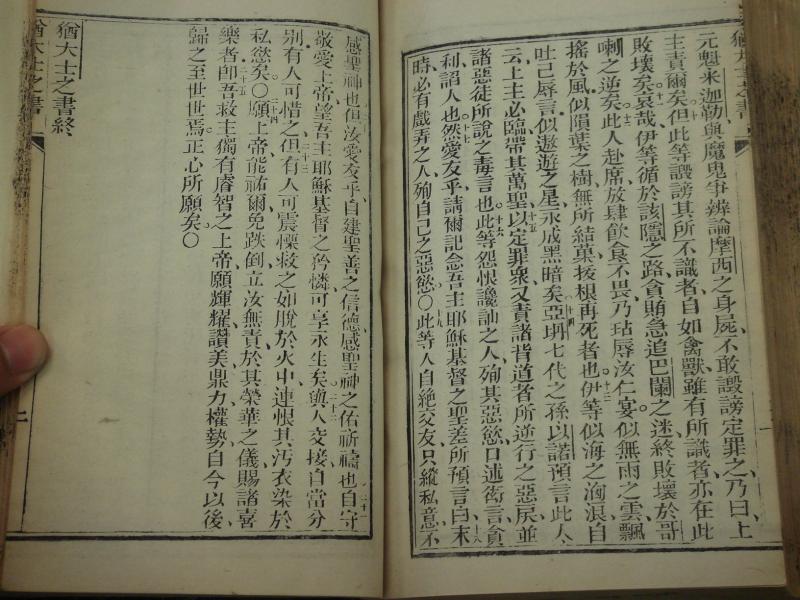 猶大士之書
元魁米迦勒與魔鬼爭辨論摩西之身屍不敢譭謗定罪之乃曰上
主責爾矣但此等譭謗其所不識者自如禽獸雖有所識者亦在此
敗壞矣哀哉伊等循於該隱之路貪賄急追巴闌之迷終敗壞於哥
喇之逆矣此人赴席放肆飲食不畏乃玷辱汝仁宴似無雨之雲飄
搖於風似隕葉之樹無所結菓拔根再死者也伊等似海之洶浪自
吐己辱言似遨遊之星永成黑暗矣亞坍七代之孫以諾預言此人
云上主必臨帶其萬聖以定罪眾又責諸背道者所逆行之惡戾並
諸惡徒所說之毒言也此等怨恨讒訕之人殉其惡慾口述衒言貪
利謟人也然愛友乎請爾記念吾主耶穌基督之聖差所預言曰末
時必有戲弄之人殉自己之惡慾〇此等人自絕交友只縱私意不
感聖神也但汝愛友乎自建聖善之信德感聖神之佑祈禱也自守
敬愛上帝望吾主耶穌基督之矜憐可享永生矣與人交接自當分
別有人可惜之但有人可震慄救之如脫於火中連恨其汚衣染於
私慾矣〇願上帝能祐爾免跌倒立汝無責於其榮華之儀賜諸喜
樂者即吾救主獨有睿智之上帝願輝耀讚美鼎力權勢自今以後
歸之至世世焉正心所願矣〇
猶大士之書終
猶大士之書
二